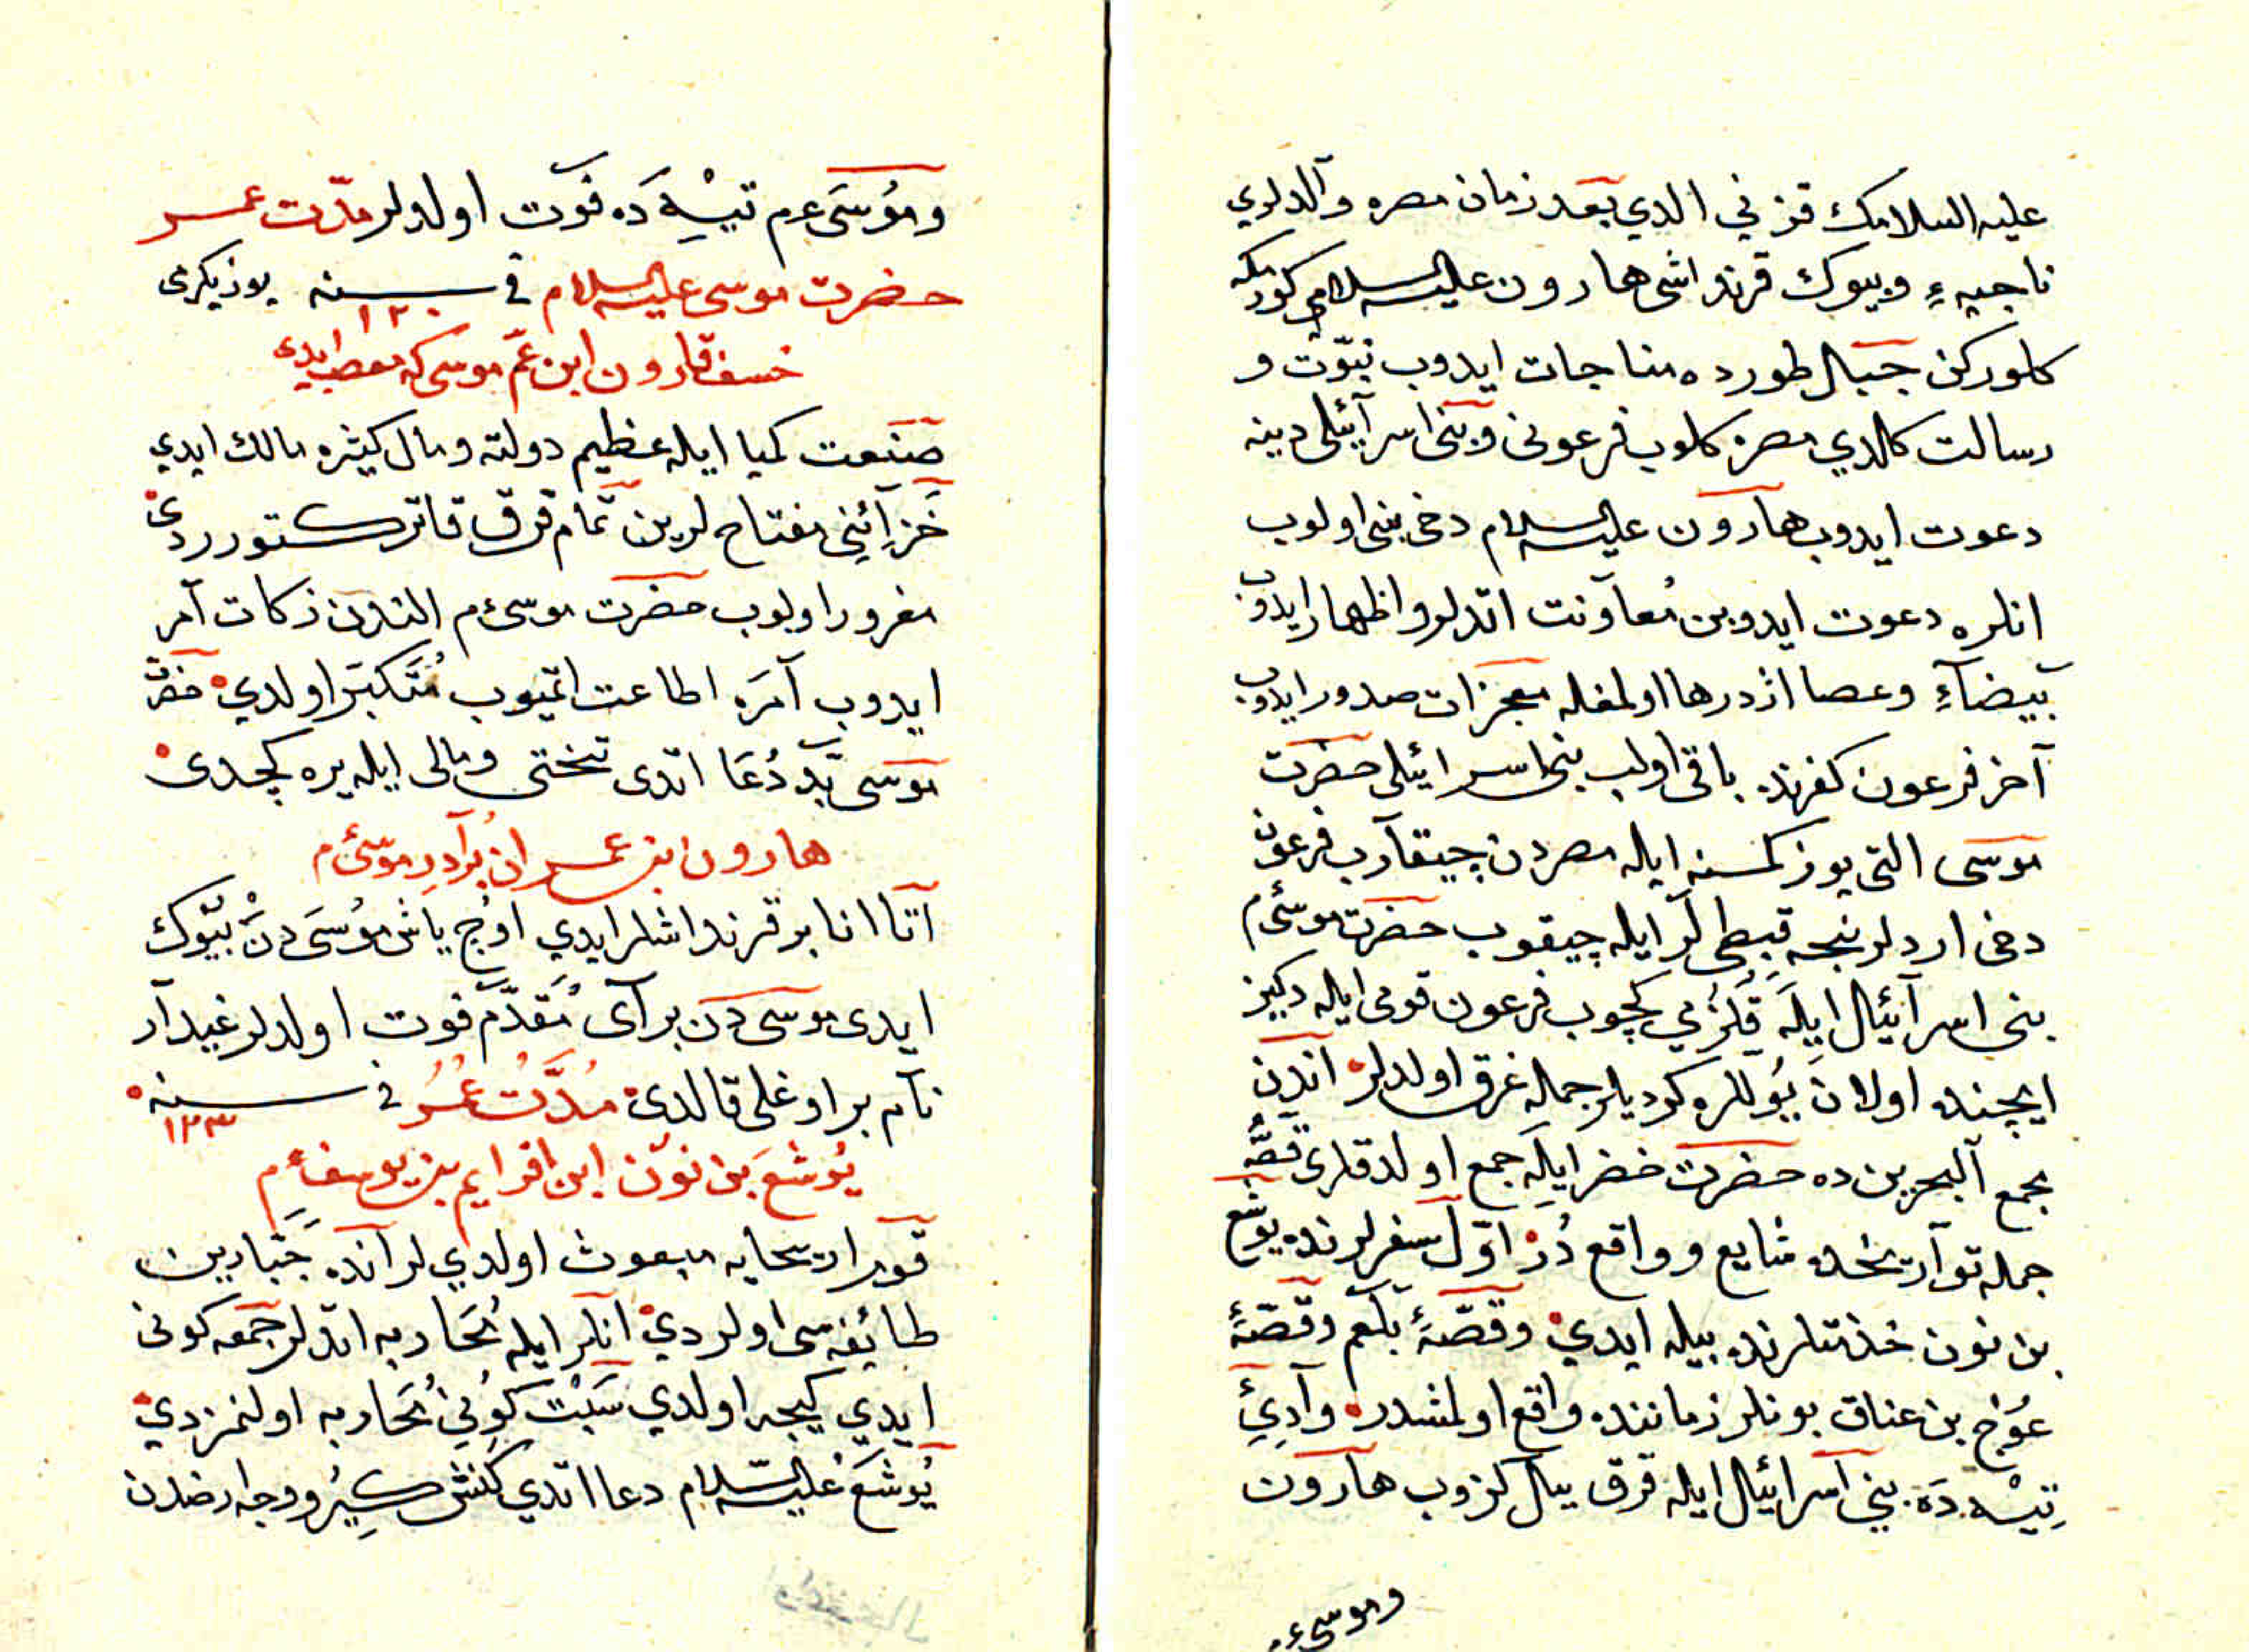 عليه السلامك قزني الدي بعد زمان مصره والدلري
ناجيهء وبيوك قرنداشى هارون عليه السلامى كورمكه
كلوركن جبال طورده مناجات ايدوب نبوّت و
رسالت كلدي مصره كلوب فرعونى وبنى اسرآئيلى دينه
دعوت ايدوب هارون عليه السلام دخى بنى اولوب
انلره دعوت ايدوبن مُعاونت اتدلر واظهار ايدوب
بيضآءِ وعصا اژدرها اولمغله معجزات صدور ايدوب
آخر فرعون كفرنده باقى اولب بنى اسرائيلى حضرت
موسى التى يوز كمسنه ايله مصردن چيقآرب فرعون
دخى اردلرنجه قبطى لر ايله چيقوب حضرت موسىٰ ءم
بنى اسرآئيل ايله قُلزُمي كچوب فرعون قومى ايله دكيز
ايچنده اولان يُوللره كرديلر جمله غرق اولدلر اندن
مجمع البحرين ده حضرت خضر ايله جمع اولدقلرى قصّه
جمله توآريخده شايع وواقع دُر اوّل سفرلرنده يوشع
بن نون خذمتلرنده بيله ايدي وقصّهٔ بلعم وقصّهٔ
عُوْج بن عناق بونلر زماننده واقع اولمشدر وآدئِ
تِيْه دَه بني آسرائيل ايله قرق ييل كزوب هارون
وموسىء
وموُسَى عم تيْهِ دَه فوت اولدلر مدّت عمر
حضرت موسى عليه السلام فى سنه ١٢٠ يوزيكرى
خسف قارون ابن عمّ موسى كه ايدى
صنعت كميا ايله عظيم دولته ومال كثيره مالك ايدي
خزآئنِى مفتاح لرين تمام قرق قاتر كتوررديْ
مغرور اولوب حضرت موسىءم الندن زكات آمر
ايدوب آمره اطاعت اتميوب مُتكبّر اولدي حضرت
موسى بَد دُعا اتدى تختى ومالى ايله يره كچدى
هارون بن عمران برآدرِ موسىءم
اتا انا بر قرنداشلر ايدي اوُچ ياش موُسَى دنْ بيُوك
ايدى موسى دن بر آى مُقدّم فوت اولدلر غيدآر
نام بر اوغلى قالدى مُدَّت عُمُر فى سنه ١٢٣
يُوشَعَ بن نوُن ابن افرايم بن يوسفءم
قوم اريحايه مبعوث اولدي لر آنده جبّارين
طائفه سى اولردي انلر ايله مُحاربه اتدلر جمعه كونى
ايدي كيجه اولدي سَبْت كوُنِي مُحاربه اولنمزدي
يُوشَع عليه السّلام دعا اتدي كنش